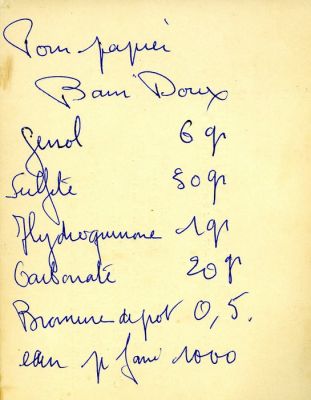 Pour papier
Bain Doux
Genol 6 gr
Sulfite 30 gr
Hydroquinone 1 gr
Carbonate 20 gr
Bromure de pot 0,5.
eau p faire 1000